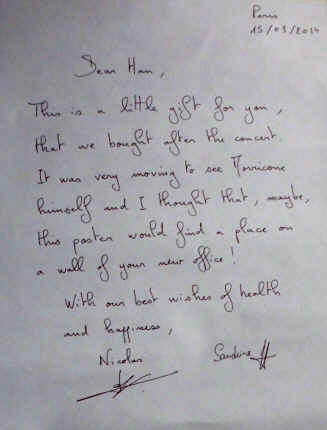 Paris
15/03/2014
Dear Han,
This is a little gift for you,
that we bought after the concert.
It was very moving to see Morricone
himself and I thought that, maybe,
this poster would find a place on
a wall of your new office!
With our best wishes of health
and happiness,
Nicolas Sandrine